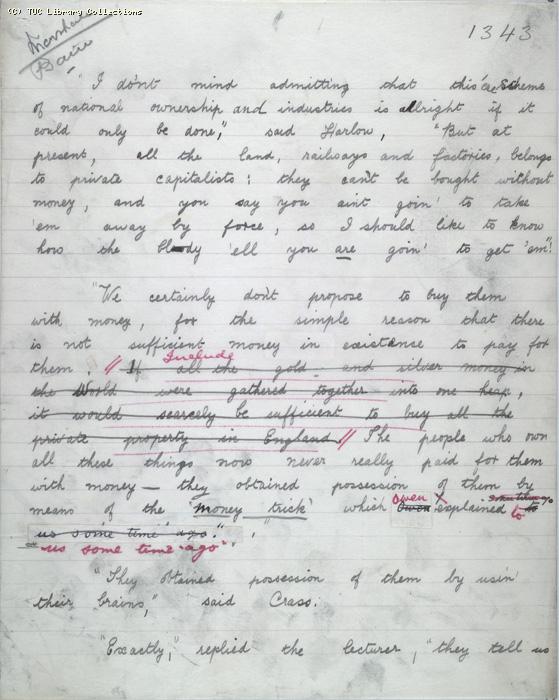 (C) TUC Library Collections
1343
"I don't mind admitting that this 'ere Scheme
of national ownership and industries is allright if it
could only be done," said Harlow, "But at
present, all the land, railways and factories, belongs
to private capitalists; they can't be bought without
money, and you say you aint goin' to take
'em away by force, so I should like to know
how the bloody 'ell you are goin' to get 'em"!
"We certainly don't propose to buy them
with money, for the simple reason that there
is not sufficient money in existence to pay for
Include
them. // If all the gold and silver money in
the World were gathered together into one heap,
it would scarcely be sufficient to buy all the
private property in England // The people who own
all these things now never really paid for them
with money — they obtained possession of them by
means of the 'money trick' which Owen explained to
us some time ago."
us some time ago".
"They obtained possession of them by usin'
their brains," said Crass.
"Exactly," replied the lecturer, "they tell us